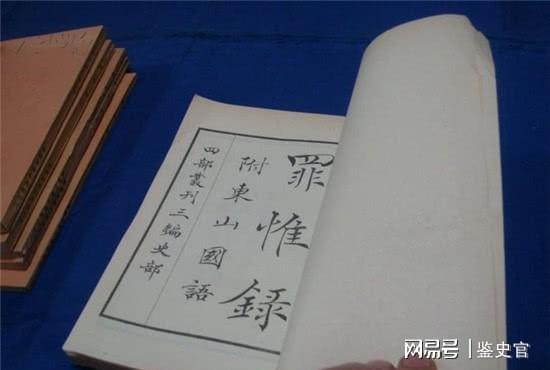 罪惟録
附東山國語
四部叢刊三編史部
网易号 | 鉴史官